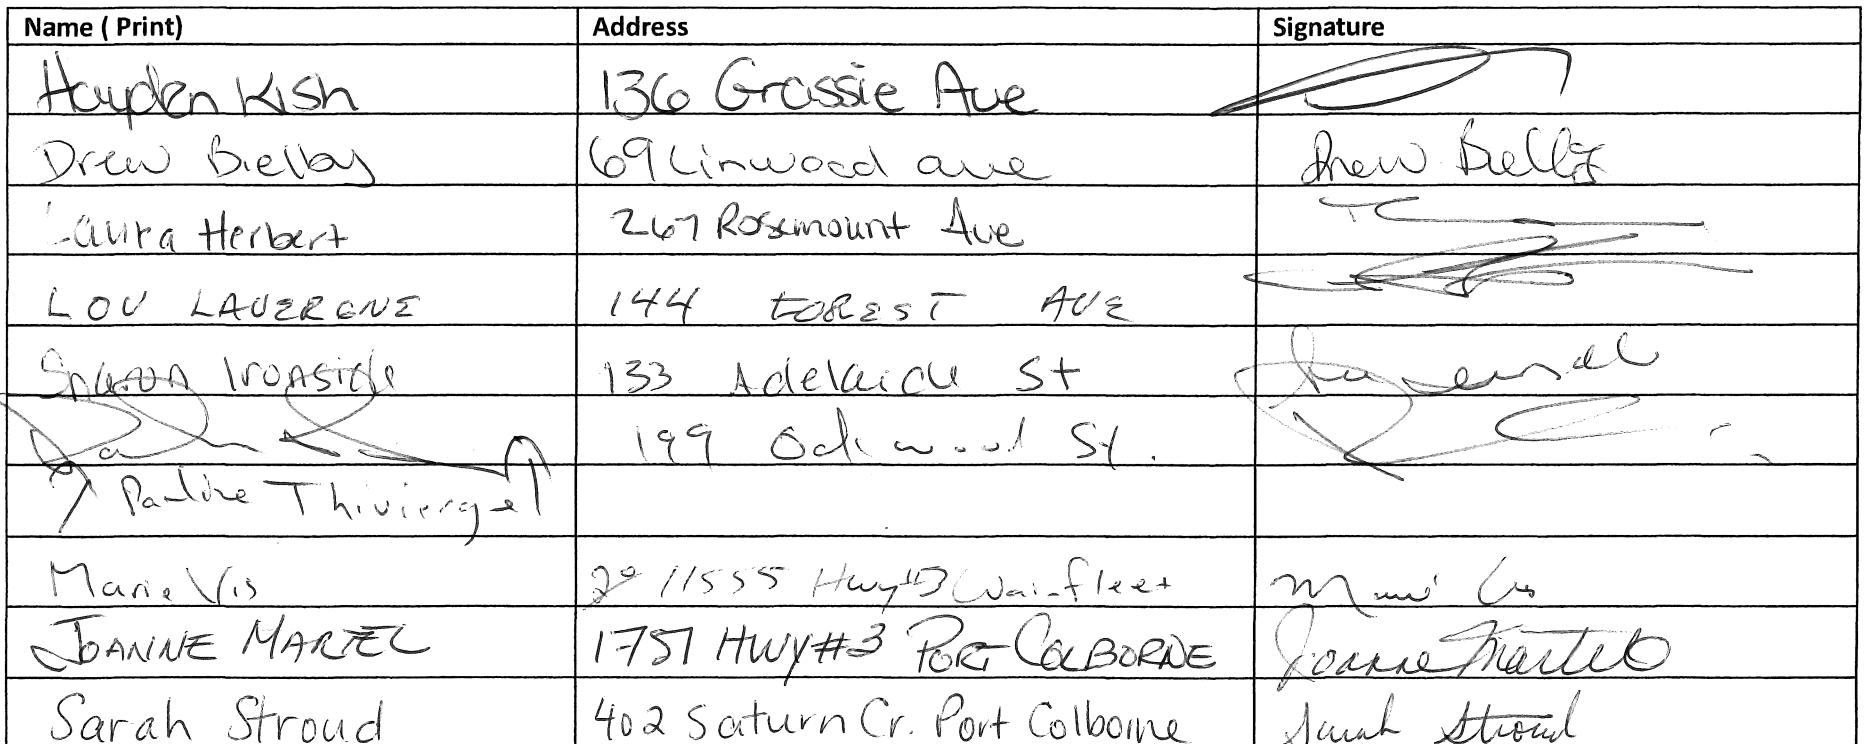 Name ( Print) Address Signature
Hayden Kish 136 Grassie Ave
Drew Bielby 69 Linwood ave Drew Bielby
Laura Herbert 267 Rosemount Ave
LOU LAVERGNE 144 FOREST AVE
Sharon Ironside 133 Adelaide St
199 Oakwood St.
Pauline Thivierge
Marie Vis 11555 Hwy#3 Wainfleet Marie Vis
JOANNE MARTEL 1757 HWY#3 PORT COLBORNE Joanne Martel
Sarah Stroud 402 Saturn Cr. Port Colborne Sarah Stroud